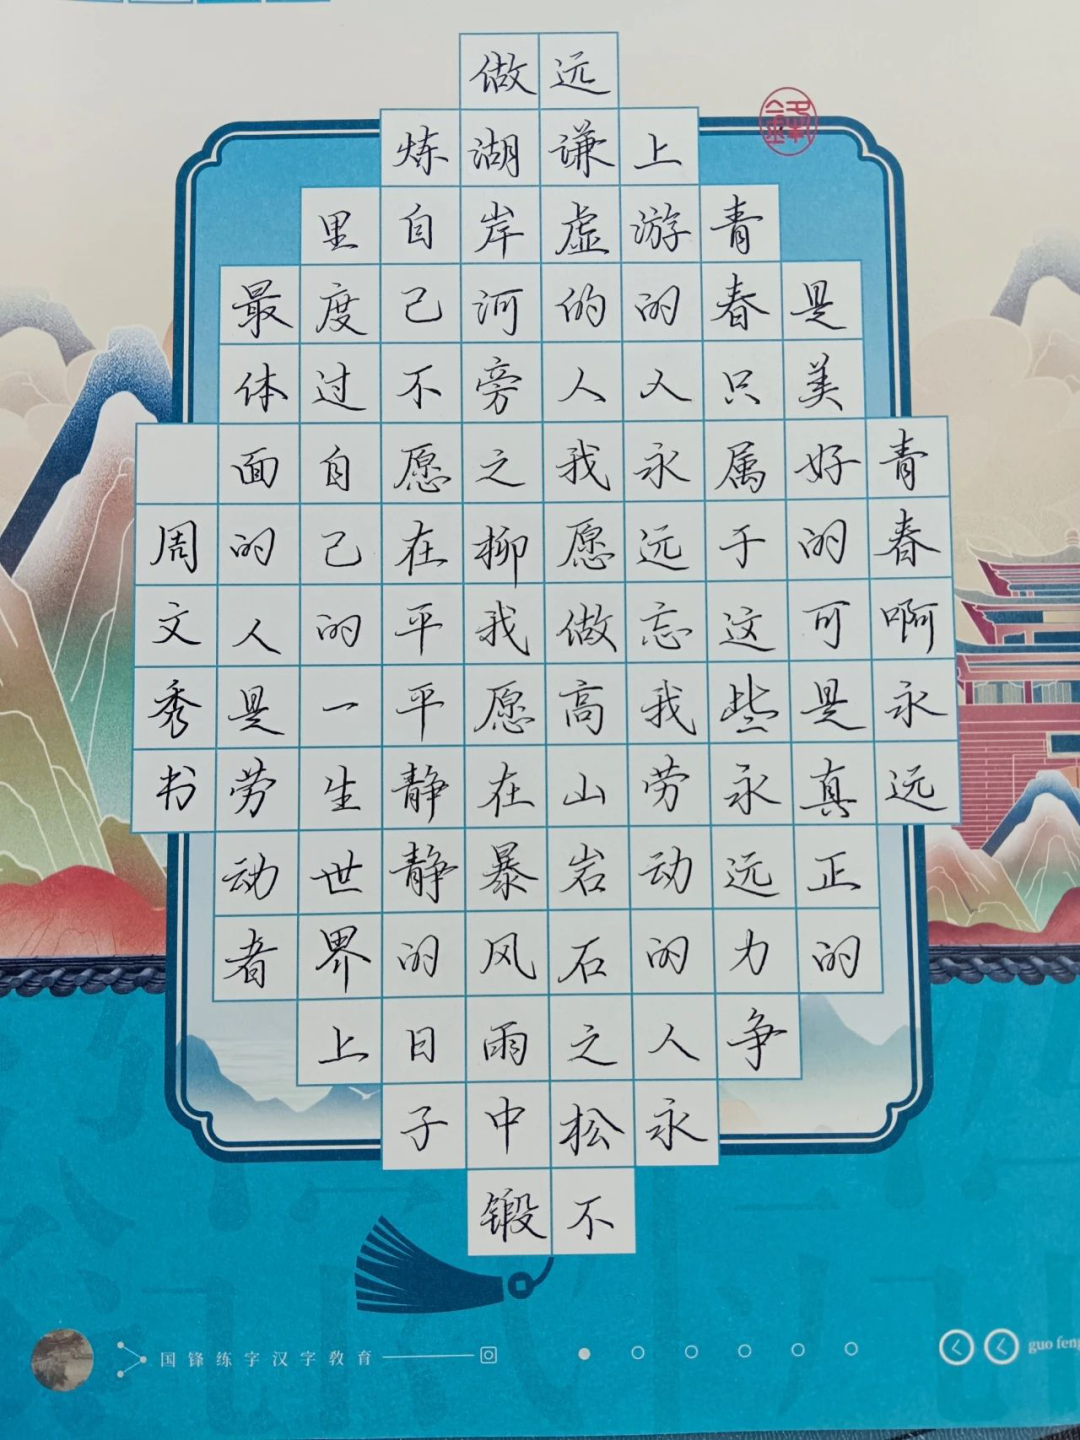 青春啊永远
是美好的可是真正的
青春只属于这些永远力争
上游的人永远忘我劳动的人永
远谦虚的人我愿做高山岩石之松不
做湖岸河旁之柳我愿在暴风雨中锻
炼自己不愿在平平静静的日子
里度过自己的一生世界上
最体面的人是劳动者
周文秀书
国锋练字汉字教育
guo feng